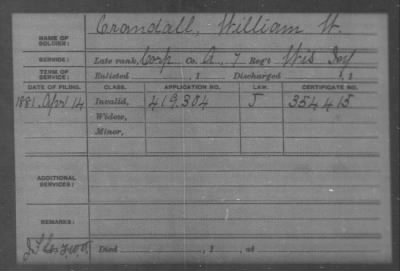 NAME OF SOLDIER: Crandall, William W.
SERVICE: Late rank, Corp Co. A, 7 Reg't Wis Inf
TERM OF SERVICE: Enlisted , 1 Discharged , 1
DATE OF FILING. CLASS. APPLICATION NO. LAW. CERTIFICATE NO.
1881, Apr 14 Invalid, 419.304 J 354415
Widow,
Minor,
ADDITIONAL SERVICES:
REMARKS:
Died , 1 , at